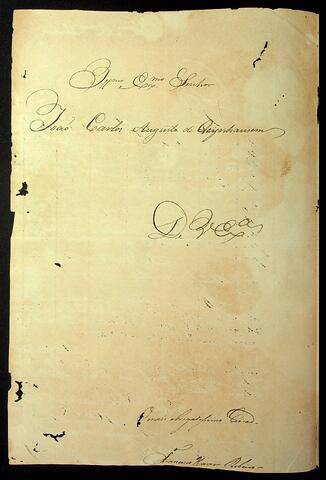 Illmo Exmo Senhor
João Carlos Augusto de Oeynhausen
De V Exa
O mais obrigadissimo Cread.
Francisco Xavier